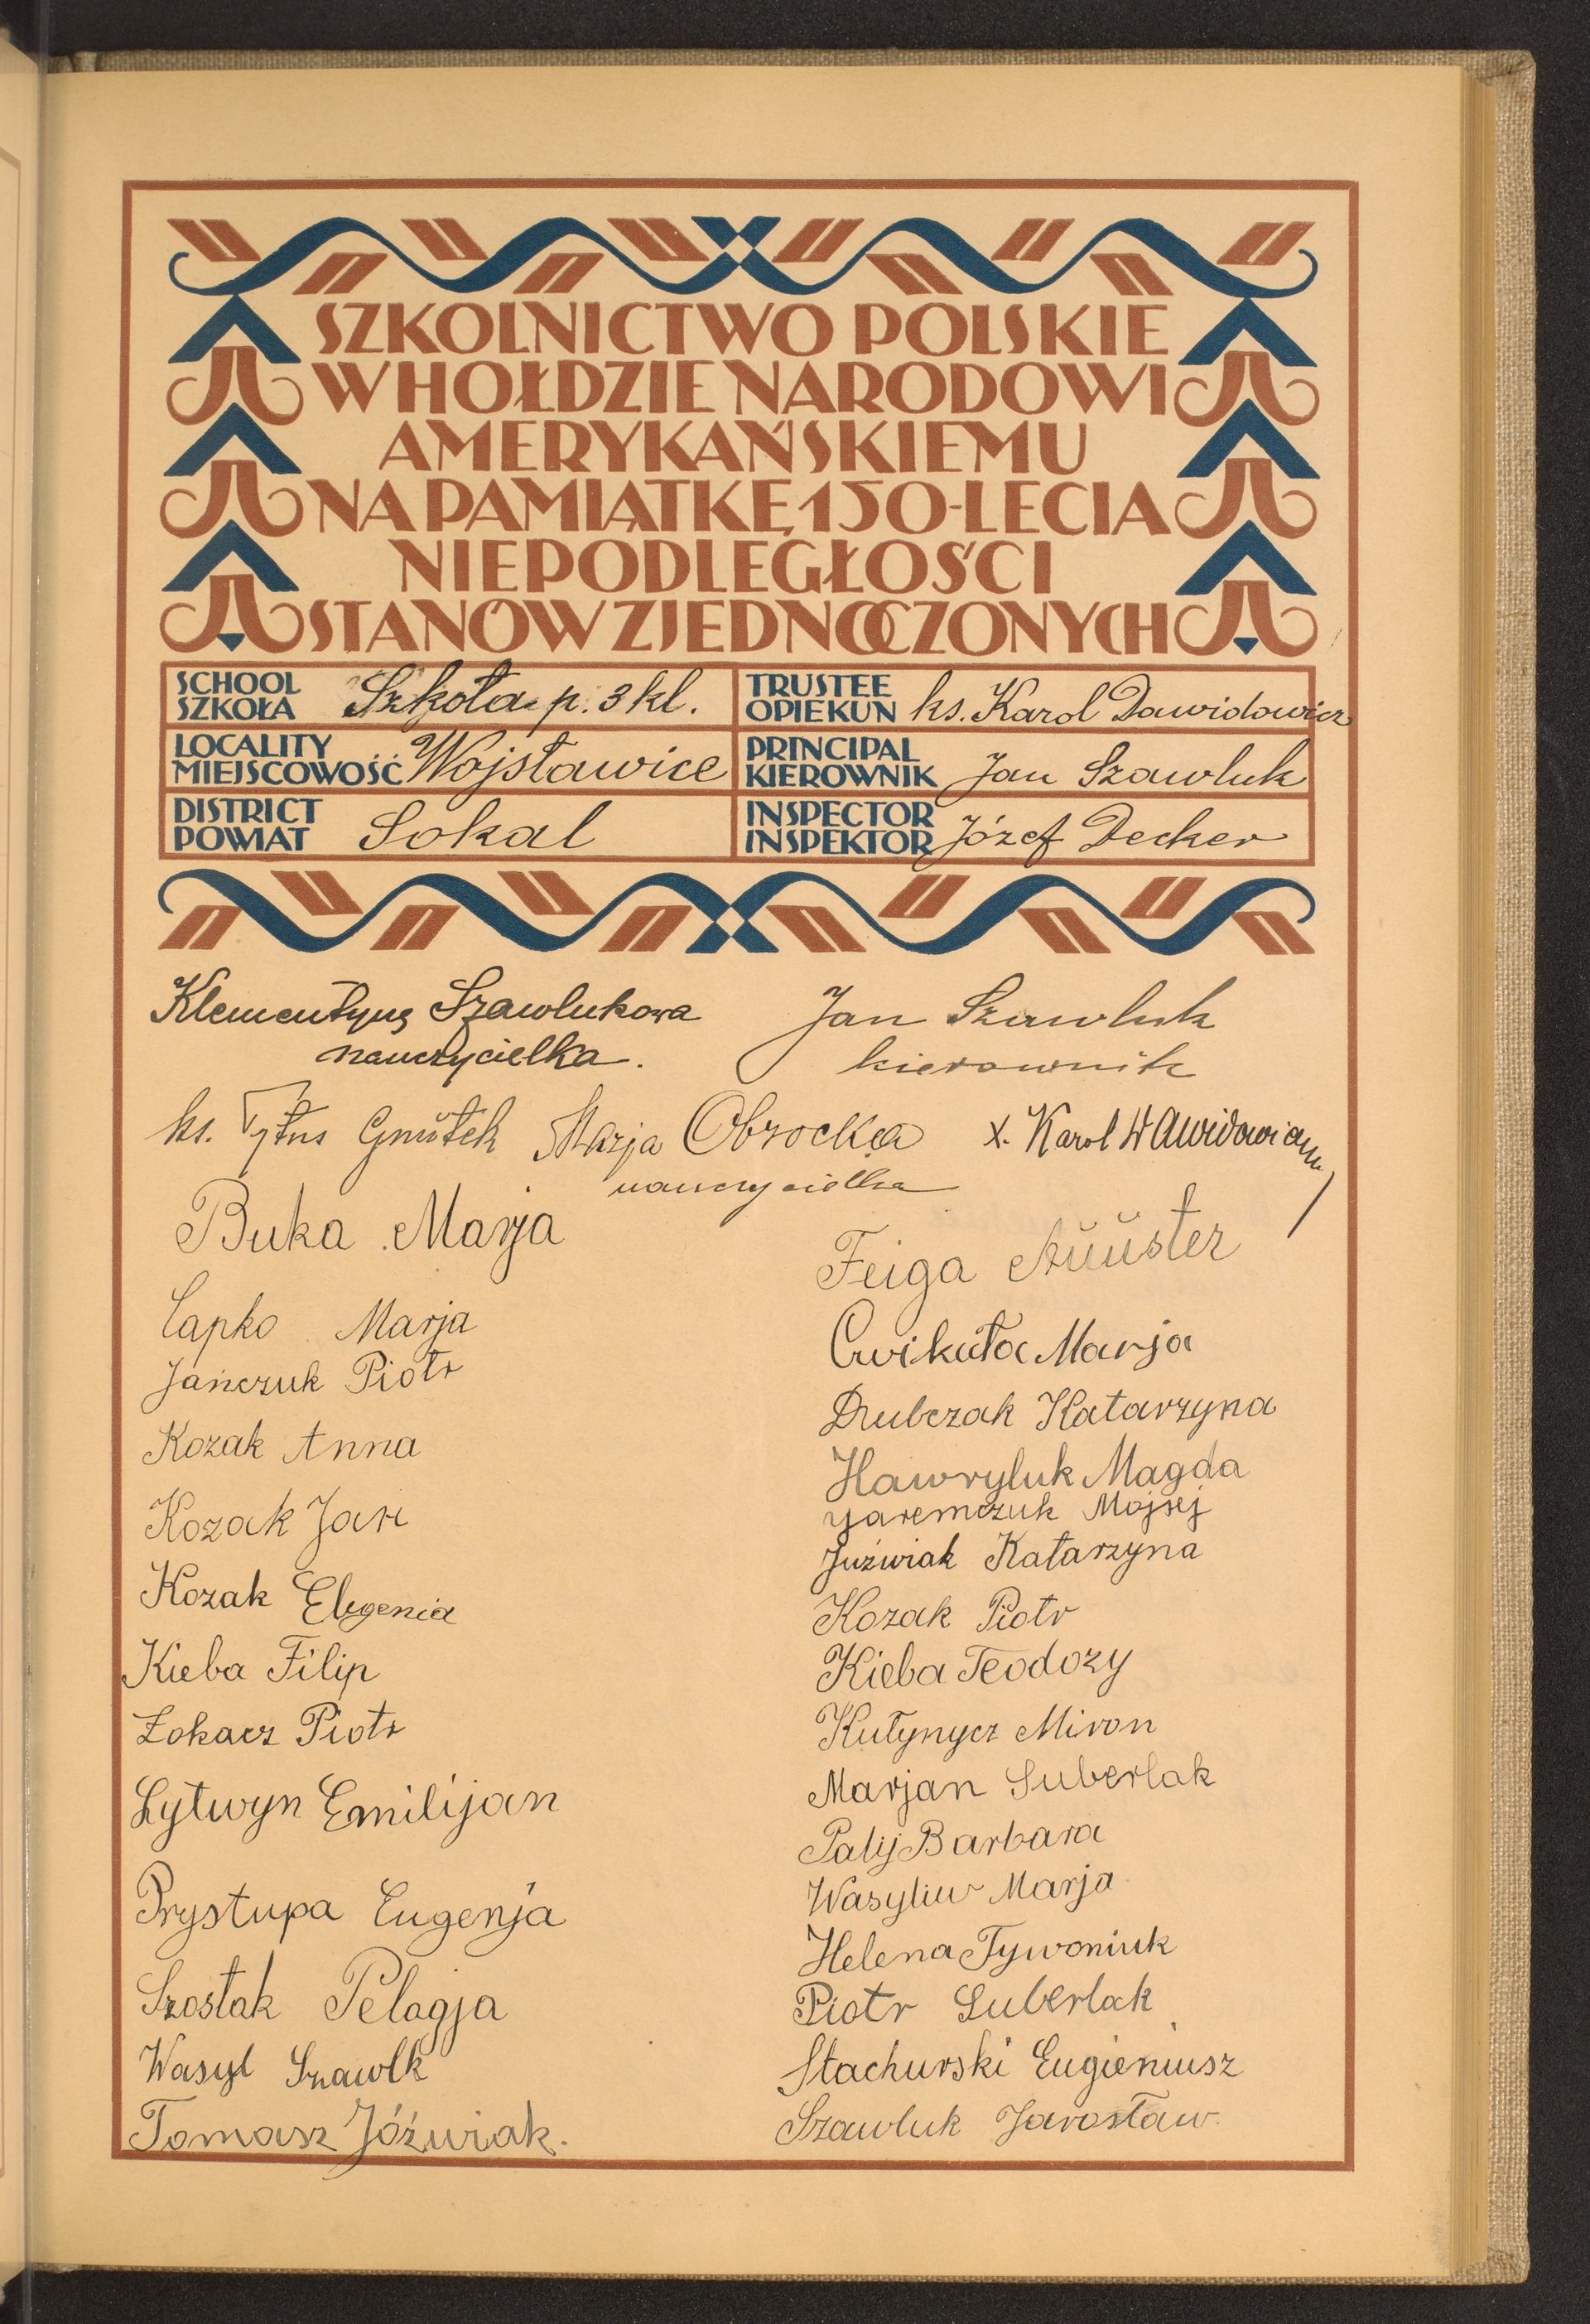 SZKOLNICTWO POLSKIE
W HOŁDZIE NARODOWI
AMERYKAŃSKIEMU
NA PAMIĄTKĘ 150-LECIA
NIEPODLEGŁOŚCI
STANÓW ZJEDNOCZONYCH
SCHOOL
SZKOŁA
Szkoła p. 3 kl.
TRUSTEE
OPIEKUN
ks. Karol Dawidowicz
LOCALITY
MIEJSCOWOŚĆ
Wojsławice
PRINCIPAL
KIEROWNIK
Jan Szawluk
DISTRICT
POWIAT
Sokal
INSPECTOR
INSPEKTOR
Józef Decker
Klementyna Szawlukowa
nauczycielka.
Jan Szawluk
kierownik
ks. Tytus Gmitek
Marja Obrocka
nauczycielka
x. Karol
Buka Marja
Łapko Marja
Jańczuk Piotr
Kozak Anna
Kozak Jan
Kozak Eugenia
Kieba Filip
Łokacz Piotr
Łytwyn Emilijan
Prystupa Eugenja
Szostak Pelagja
Wasyl
Tomasz Jóźwiak.
Feiga
Ćwikuła Marja
Drubczak Katarzyna
Hawryluk Magda
Yaremczuk Mojsej
Juźwiak Katarzyna
Kozak Piotr
Kieba Teodozy
Kutynycz Miron
Marjan Suberlak
Palij Barbara
Wasyliw Marja
Helena Tywoniuk
Piotr Suberlak
Stachurski Eugieniusz
Szawluk Jarosław.